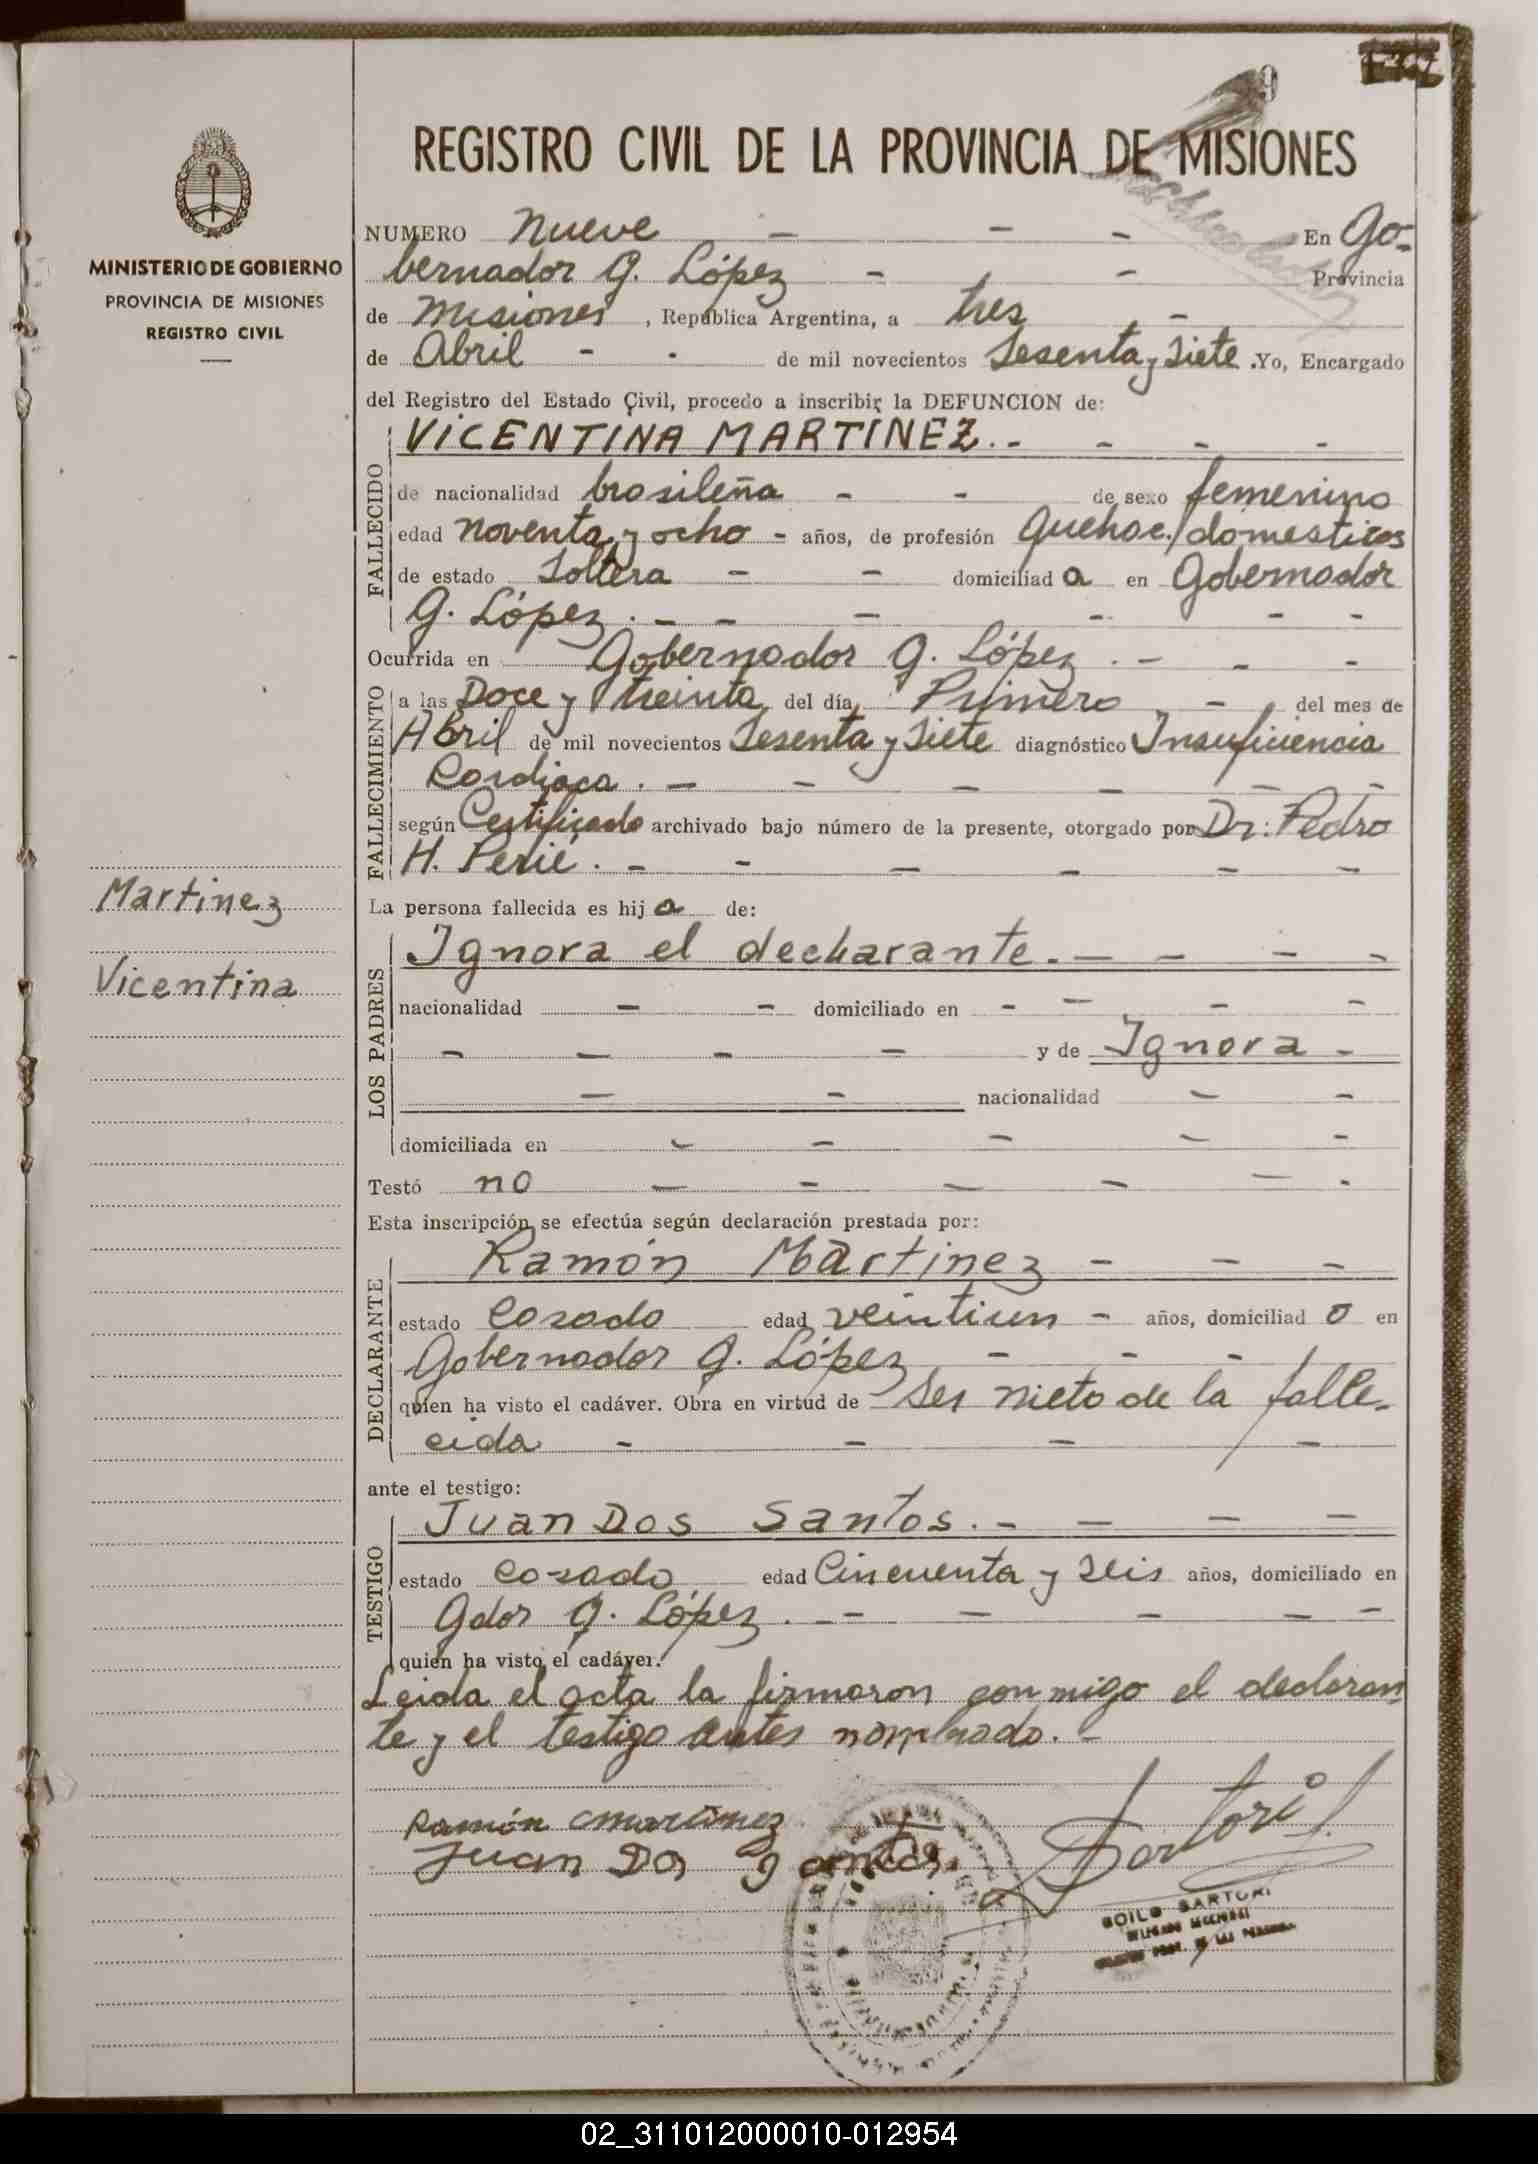 9
REGISTRO CIVIL DE LA PROVINCIA DE MISIONES
MINISTERIO DE GOBIERNO
PROVINCIA DE MISIONES
REGISTRO CIVIL
NUMERO Nueve - - - En Go-
bernador G. López - - Provincia
de Misiones, República Argentina, a tres -
de Abril - - de mil novecientos Sesenta y Siete. Yo, Encargado
del Registro del Estado Civil, procedo a inscribir la DEFUNCION de:
FALLECIDO
VICENTINA MARTINEZ.- - - -
de nacionalidad brasileña - - de sexo femenino
edad noventa y ocho - años, de profesión Quehac./domesticos
de estado Soltera - - domiciliad a en Gobernador
G. López. - - - - - -
Ocurrida en Gobernador G. López. - - -
FALLECIMIENTO
a las Doce y treinta del día Primero - del mes de
Abril de mil novecientos Sesenta y Siete diagnóstico Insuficiencia
Cardiaca. - - - - - -
según Certificado archivado bajo número de la presente, otorgado por Dr: Pedro
H. Perié. - - - - - -
La persona fallecida es hij a de:
Martinez
Vicentina
LOS PADRES
Ignora el declarante. - - - -
nacionalidad - - domiciliado en - - - -
- - - - y de Ignora -
- - nacionalidad - -
domiciliada en - - - - -
Testó no - - - - - -
Esta inscripción se efectúa según declaración prestada por:
DECLARANTE
Ramón Martinez - - -
estado Casado edad veintiun - años, domiciliad o en
Gobernador G. López - - -
quien ha visto el cadáver. Obra en virtud de Ser nieto de la falle-
cida - - - -
ante el testigo:
TESTIGO
Juan Dos Santos. - - - -
estado Casado edad Cincuenta y Seis años, domiciliado en
Gdor G. López. - - - - -
quien ha visto el cadáver.
Leida el acta la firmaron conmigo el declaran
te y el testigo antes nombrado. -
Ramón Martinez
Juan Dos Santos.
Sartori
SARTORI
02_311012000010-012954